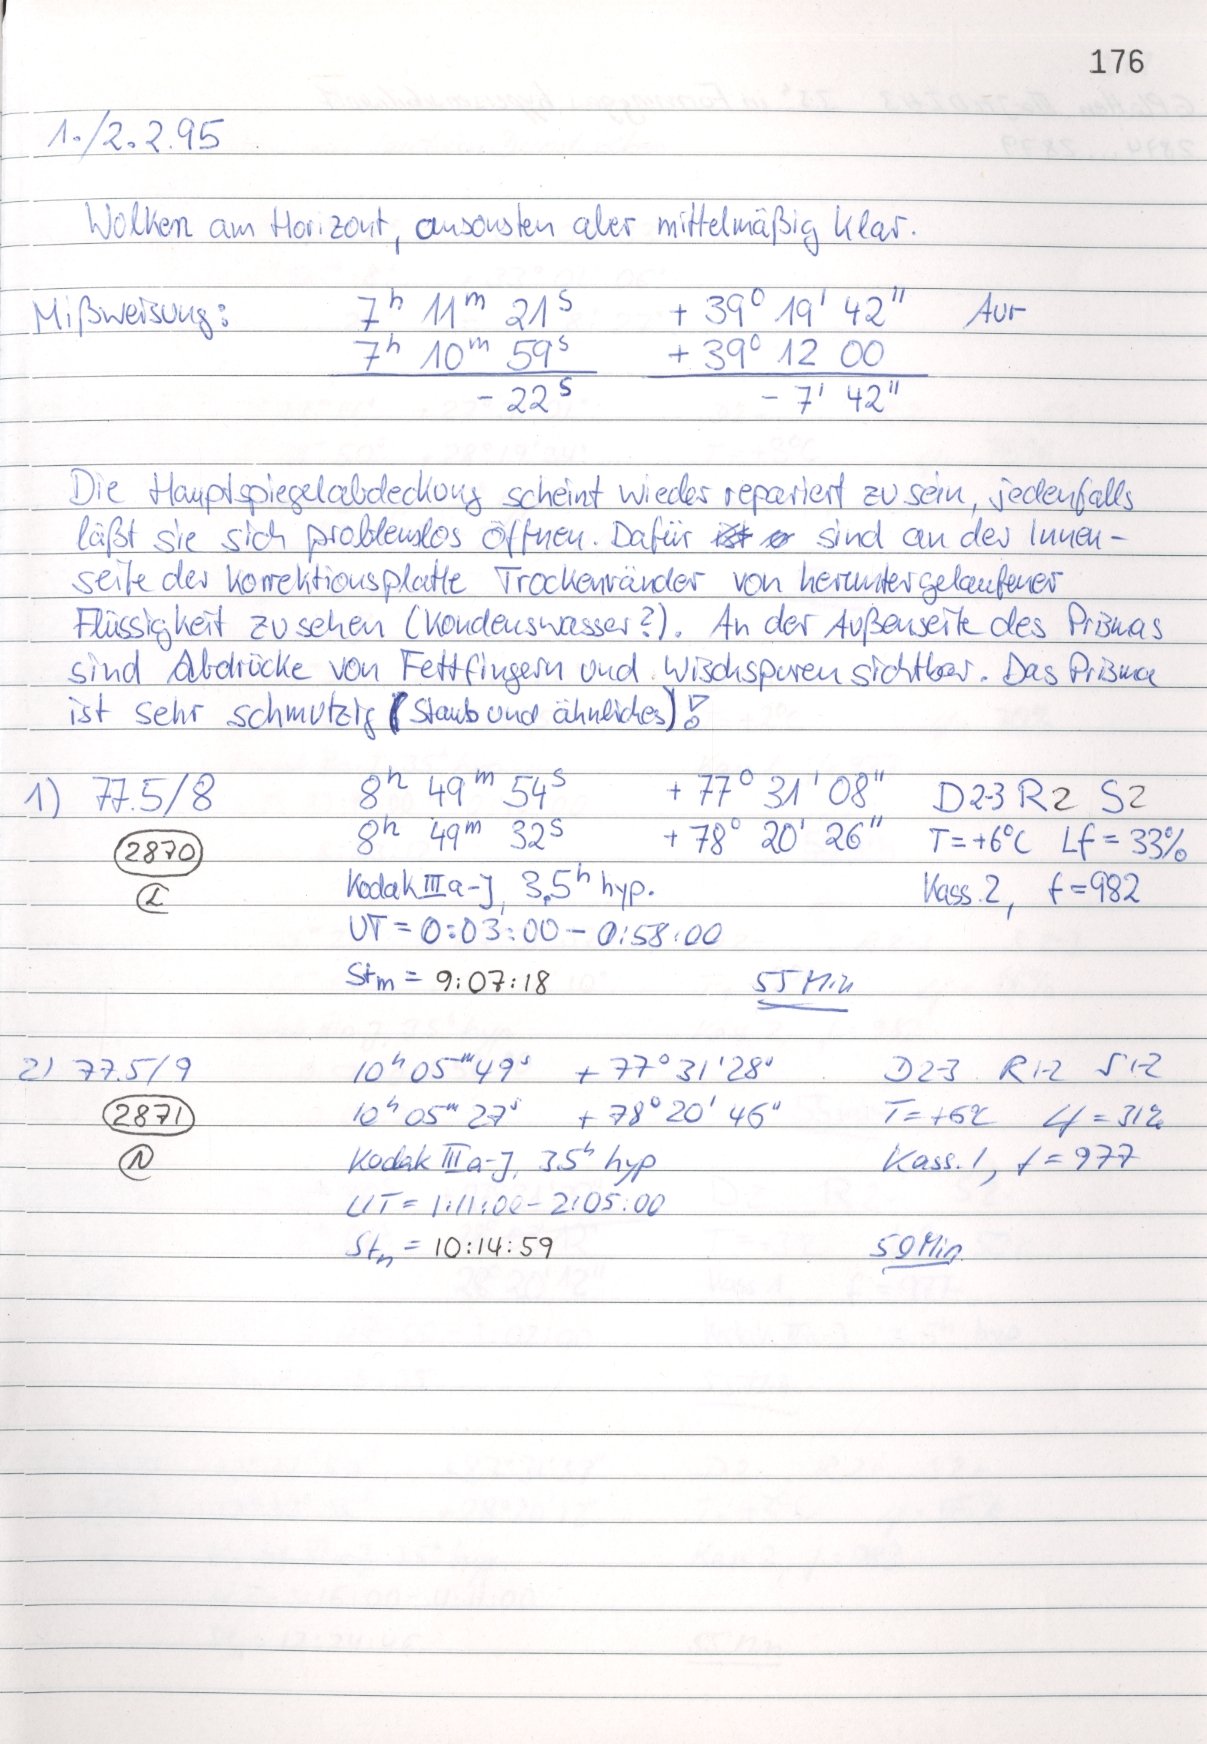 176
1./2.2.95
Wolken am Horizont, ansonsten aber mittelmäßig klar.
Mißweisung: 7h 11m 21s + 39° 19' 42" Aur
7h 10m 59s + 39° 12 00
- 22s - 7' 42"
Die Hauptspiegelabdeckung scheint wieder repariert zu sein, jedenfalls
läßt sie sich problemlos öffnen. Dafür sind an der Innen-
seite der Korrektionsplatte Trockenränder von heruntergelaufener
Flüssigkeit zu sehen (Kondenswasser?). An der Außenseite des Prismas
sind Abdrücke von Fettfingern und Wischspuren sichtbar. Das Prisma
ist sehr schmutzig (Staub und ähnliches)!
1) 77.5/8 8h 49m 54s + 77° 31' 08" D2-3 R2 S2
2870 8h 49m 32s + 78° 20' 26" T=+6°C Lf = 33%
L Kodak IIIa-J, 3,5h hyp. Kass. 2, f=982
UT = 0:03:00 - 0:58:00
Stm = 9:07:18 55 Min
2) 77.5/9 10h 05m 49s + 77° 31' 28" D2-3 R1-2 S1-2
2871 10h 05m 27s + 78° 20' 46" T=+6°C Lf = 31%
N Kodak IIIa-J, 3.5h hyp Kass. 1, f = 977
UT = 1:11:00 - 2:05:00
Stm = 10:14:59 50 Min